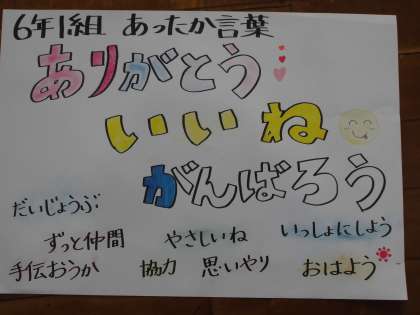 6年1組 あったか言葉
ありがとう
いいね
がんばろう
だいじょうぶ
ずっと仲間 やさしいね いっしょにしよう
手伝おうか 協力 思いやり おはよう